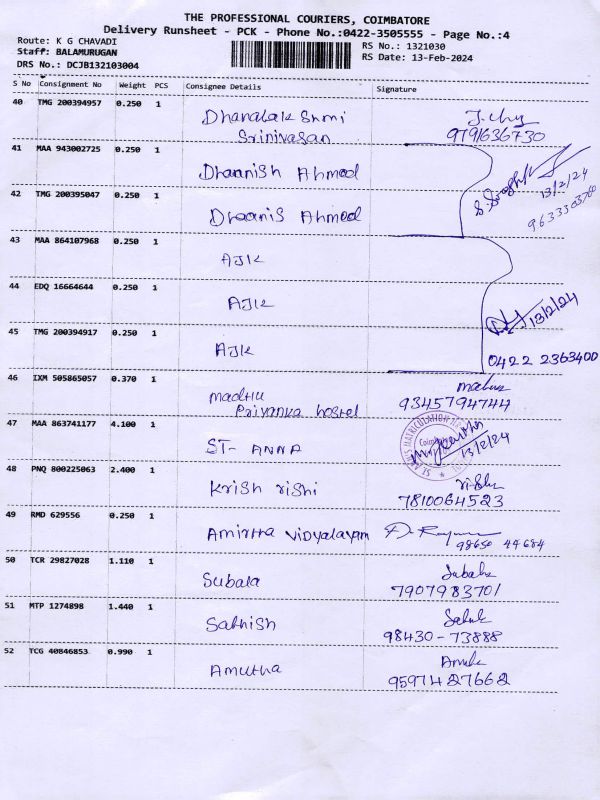 THE PROFESSIONAL COURIERS, COIMBATORE
Delivery Runsheet - PCK - Phone No.:0422-3505555 - Page No.:4
Route: K G CHAVADI
Staff: BALAMURUGAN
DRS No.: DCJB132103004
RS No.: 1321030
RS Date: 13-Feb-2024
S No Consignment No Weight PCS Consignee Details Signature
40 TMG 200394957 0.250 1 Dhanalakshmi
Srinivasan 9791636730
41 MAA 943002725 0.250 1 Dhaanish Ahmed
13/2/24
42 TMG 200395047 0.250 1 Dhaanis Ahmed
43 MAA 864107968 0.250 1 AJK
44 EDQ 16664644 0.250 1 AJK
13/2/24
45 TMG 200394917 0.250 1 AJK
0422 2363400
46 IXM 505865057 0.370 1 Madhu
Priyanka hostel 9345794744
47 MAA 863741177 4.100 1 ST- ANNA
13/2/24
48 PNQ 800225063 2.400 1 Krish rishi
7810064523
49 RMD 629556 0.250 1 Amirtha vidyalayam
98650 44684
50 TCR 29827028 1.110 1 Subala
7907983701
51 MTP 1274898 1.440 1 Sathish
98430-73888
52 TCG 40846853 0.990 1 Amutha
9597427662